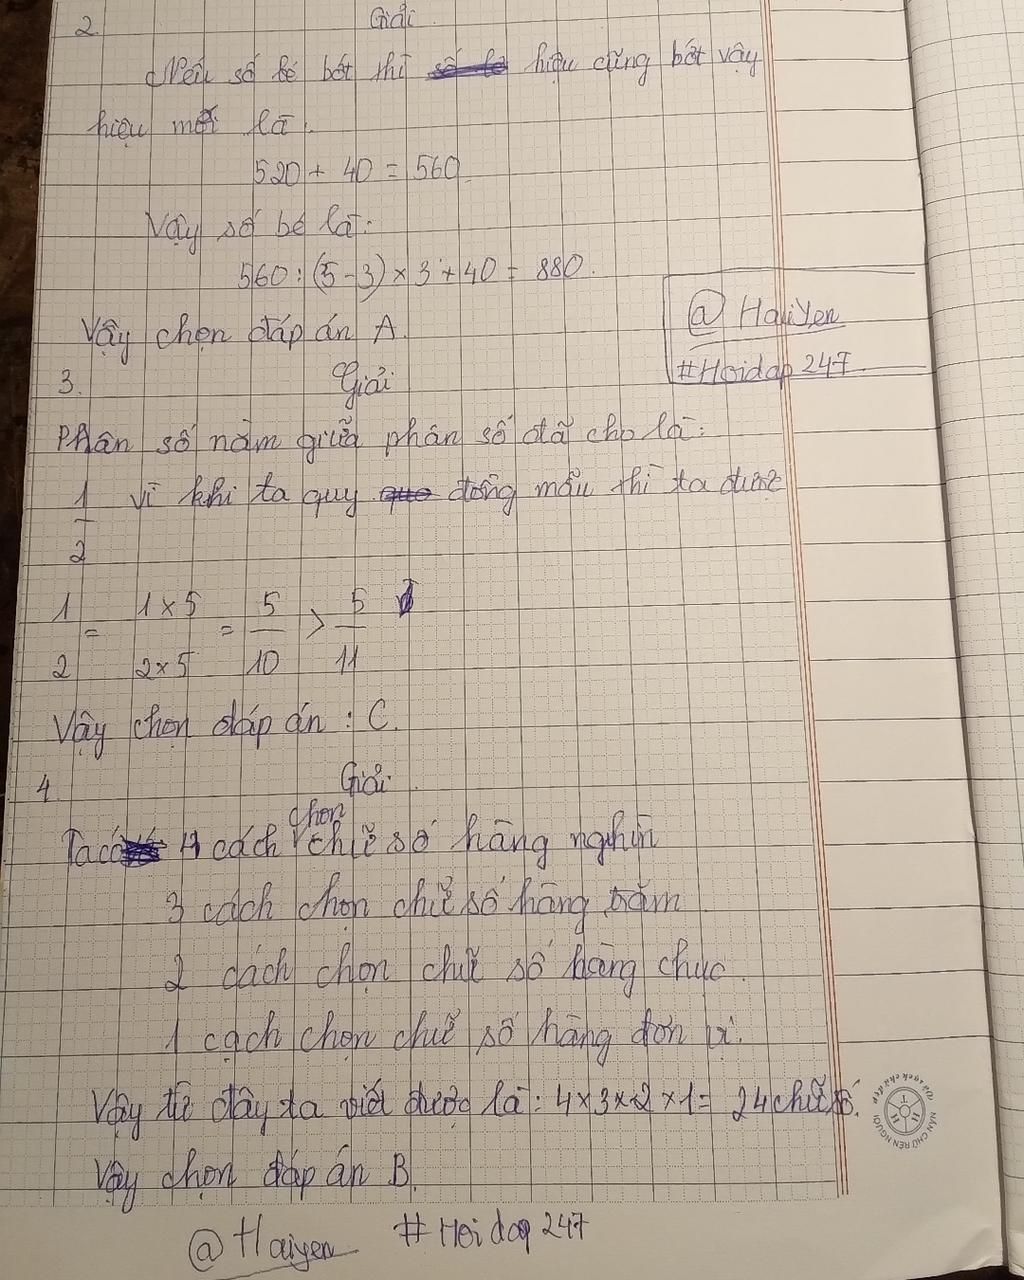 2. Giải
Nếu số bé bớt thì hiệu cũng bớt vậy
hiệu mới là.
520 + 40 = 560
Vậy số bé là:
560 : (5 - 3) × 3 + 40 = 880.
Vậy chọn đáp án A.
@ HaiYen
#Hoidap 247
3. Giải
Phân số nằm giữa phân số đã cho là:
1/2 vì khi ta quy đồng mẫu thì ta được
1/2 = 1×5/2×5 = 5/10 > 5/11
Vậy chọn đáp án : C.
4. Giải
Ta có 4 cách chọn chữ số hàng nghìn
3 cách chọn chữ số hàng trăm
2 cách chọn chữ số hàng chục.
1 cách chọn chữ số hàng đơn vị.
Vậy từ đây ta viết được là: 4×3×2×1= 24 chữ số.
Vậy chọn đáp án B.
NÉT CHỮ RÈN NGƯỜI
@Haiyen #Hoidap 247